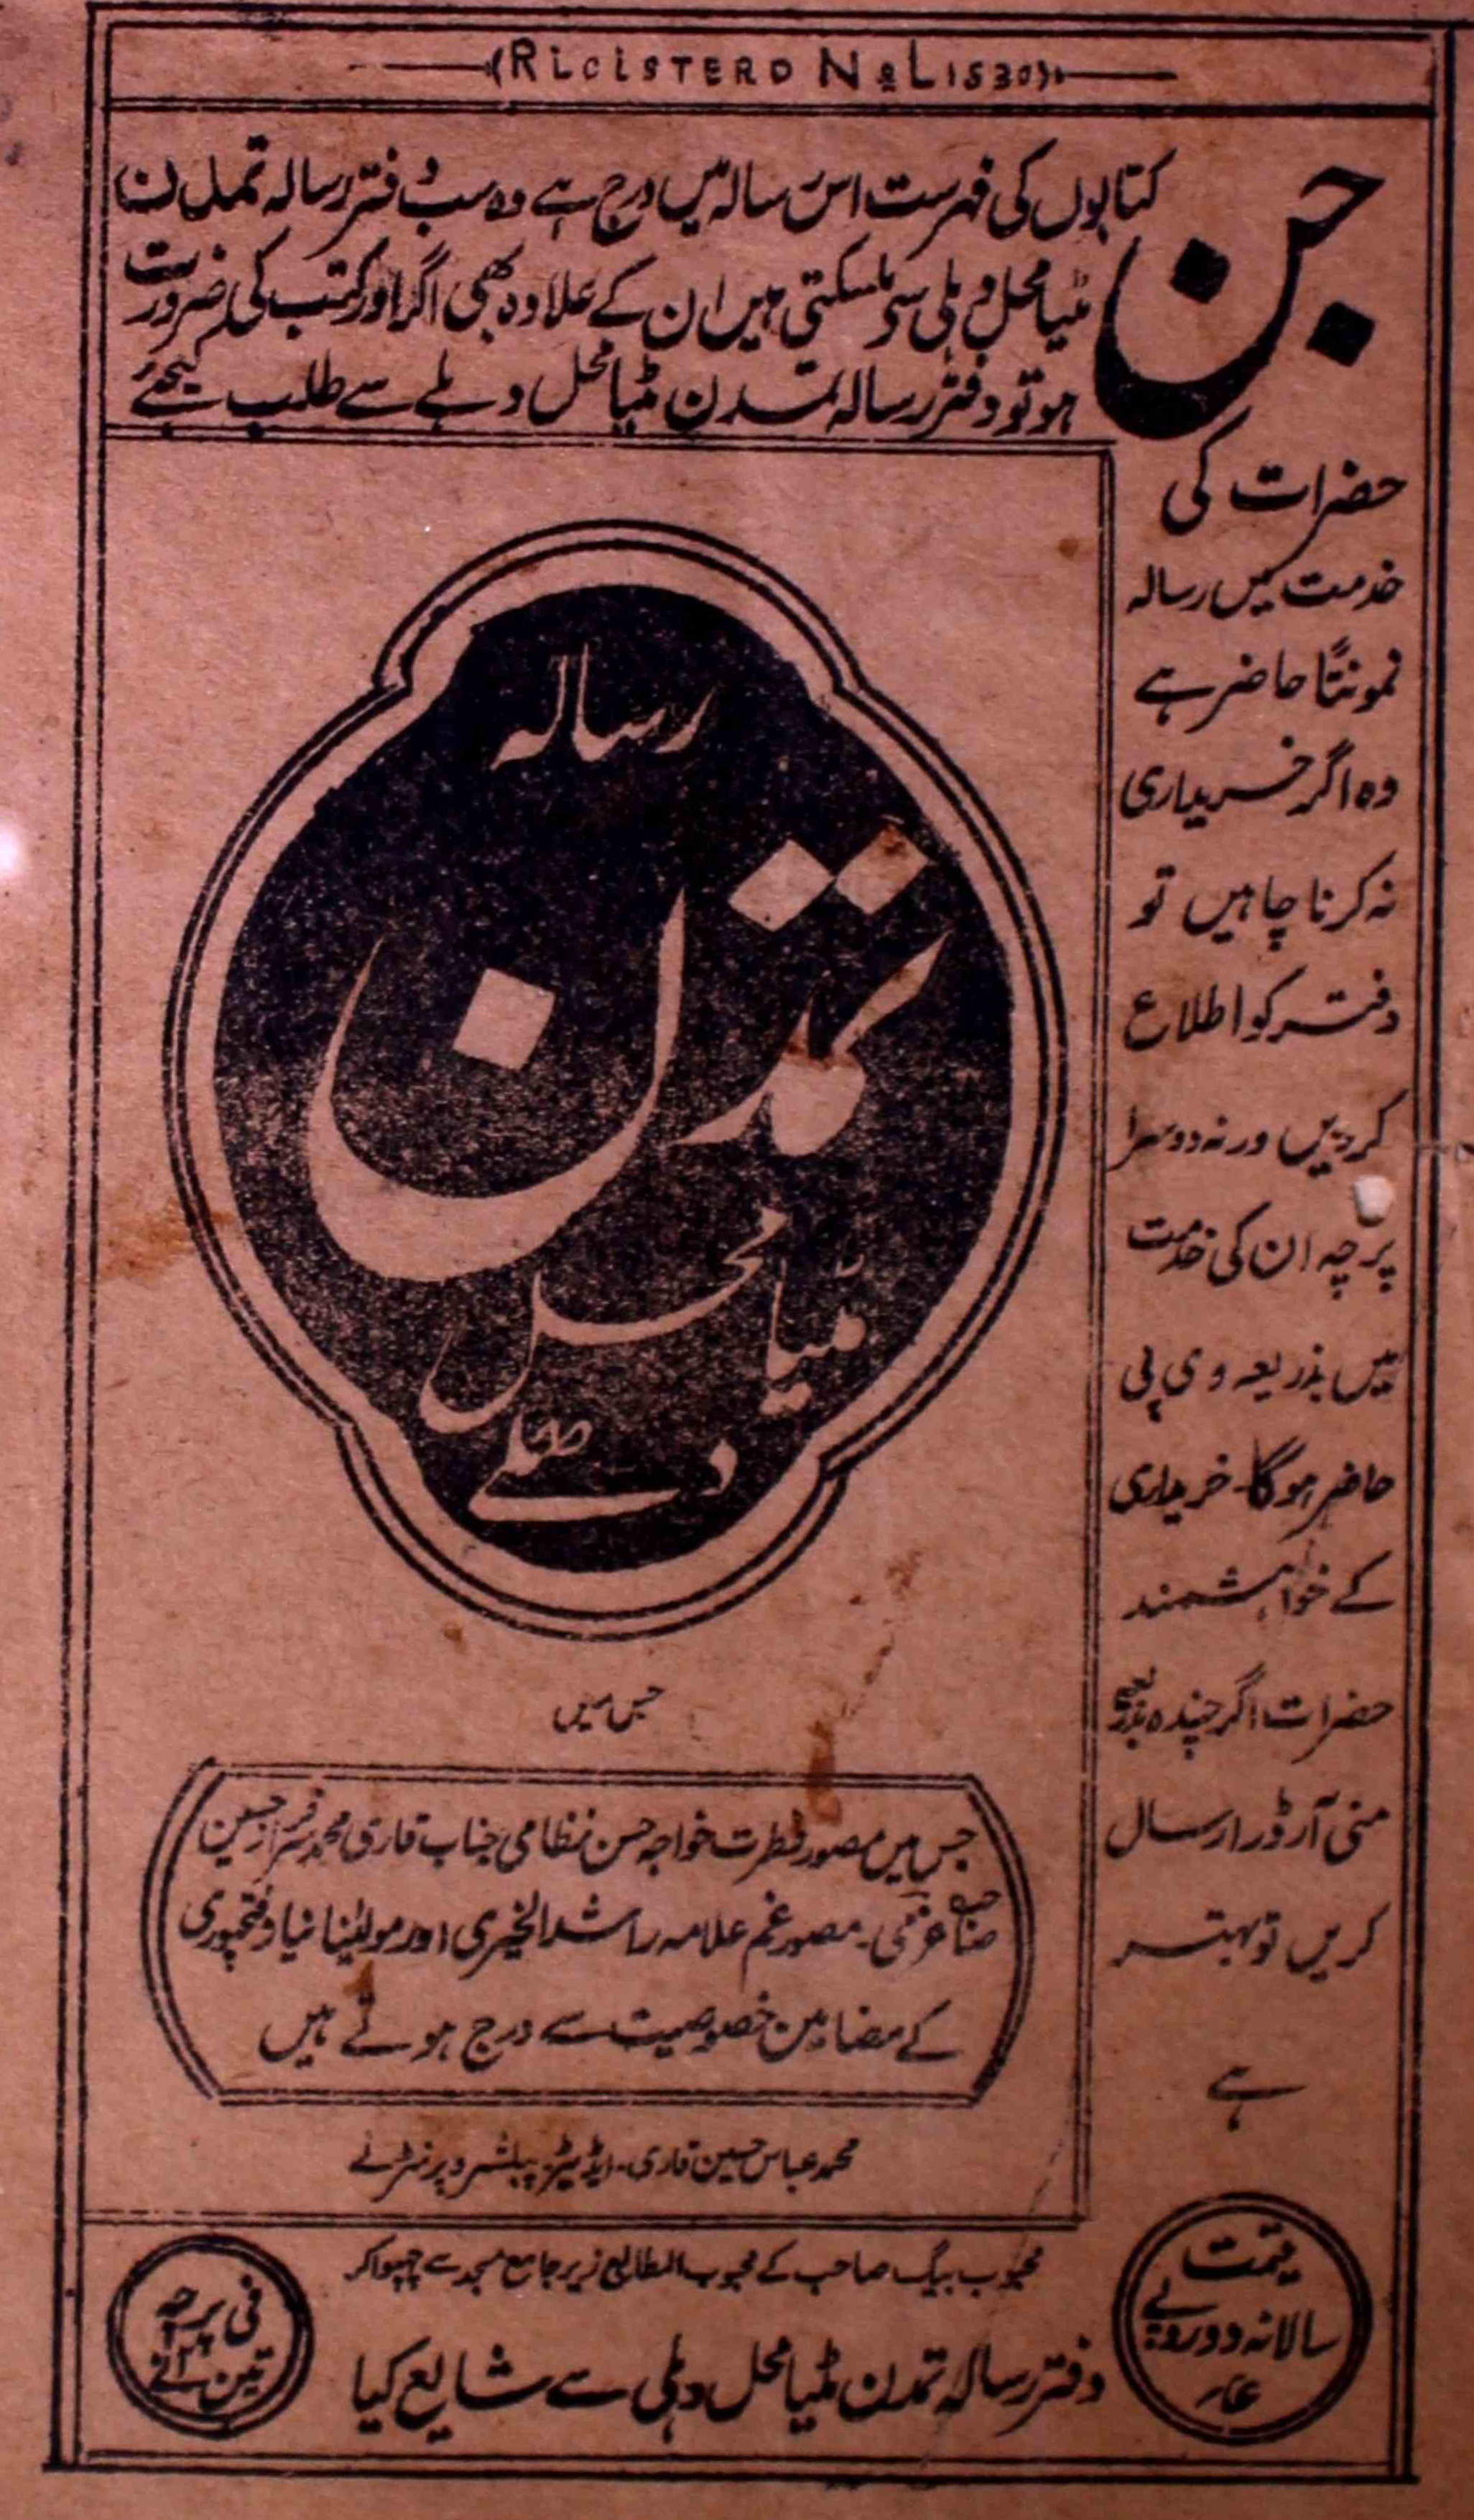 (RICISTERD No L1530)
جن
کتابوں کی فہرست اس رسالہ میں درج ہے وہ سب دفتر رسالہ تمدن
مٹیا محل دہلی سے مل سکتی ہیں ان کے علاوہ بھی اگر اور کتب کی ضرورت
ہو تو دفتر رسالہ تمدن مٹیا محل دہلے سے طلب کیجئے
حضرات کی
خدمت میں رسالہ
نمونتاً حاضر ہے
وہ اگر خریداری
نہ کرنا چاہیں تو
دفتر کو اطلاع
کردیں ورنہ دوسرا
پرچہ ان کی خدمت
میں بذریعہ وی پی
حاضر ہوگا۔ خریداری
کے خواہشمند
حضرات اگر چندہ بذریعہ
منی آرڈر ارسال
کریں تو بہتر
ہے
رسالہ
تمدن
مٹیا محل
دہلے
جس میں
جس میں مصور فطرت خواجہ حسن نظامی جناب قاری محمد سرفراز حسین
صاحب عزمی۔ مصور غم علامہ راشد الخیری اور مولینا نیاز فتحپوری
کے مضامین خصوصیت سے درج ہوتے ہیں
محمد عباس حسین قاری۔ ایڈیٹر پبلشر و پرنٹر نے
محبوب بیگ صاحب کے محبوب المطابع زیر جامع مسجد سے چھپوا کر
دفتر رسالہ تمدن مٹیا محل دہلی سے شایع کیا
قیمت
سالانہ دو روپے
فی پرچہ
۳ر
تین آنے